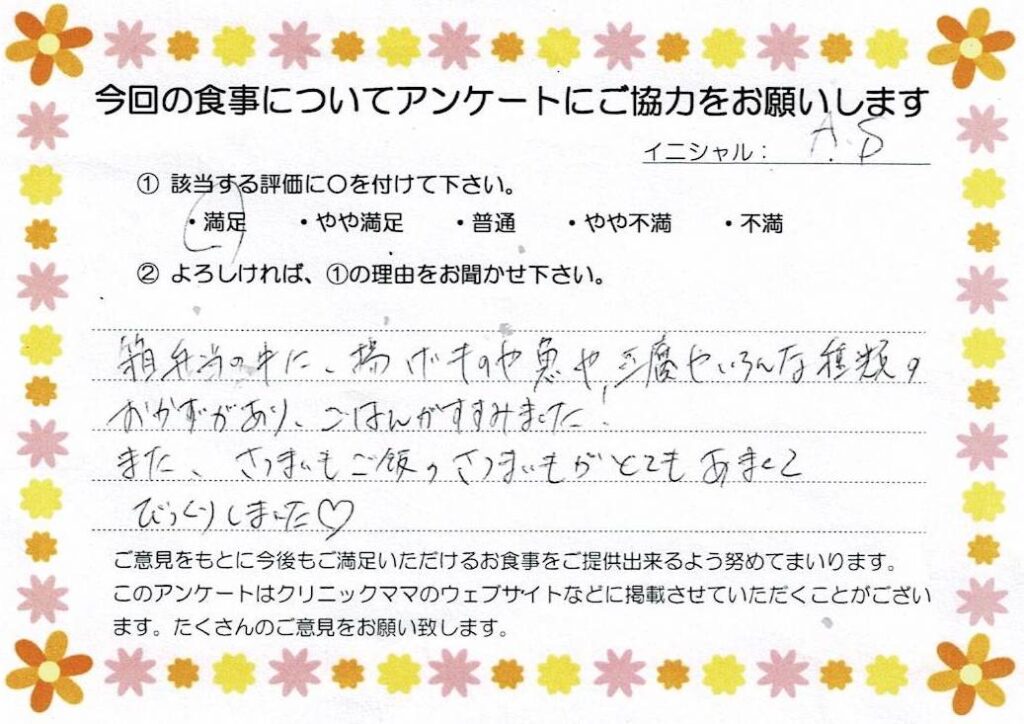 今回の食事についてアンケートにご協力をお願いします
イニシャル： A.S
① 該当する評価に〇を付けて下さい。
・満足 ・やや満足 ・普通 ・やや不満 ・不満
② よろしければ、①の理由をお聞かせ下さい。
箱弁当の中に、揚げものや魚や、豆腐やいろんな種類の
おかずがあり、ごはんがすすみました!
また、さつまいもご飯のさつまいもがとてもあまくて
びっくりしました♡
ご意見をもとに今後もご満足いただけるお食事をご提供出来るよう努めてまいります。
このアンケートはクリニックママのウェブサイトなどに掲載させていただくことがござい
ます。たくさんのご意見をお願い致します。